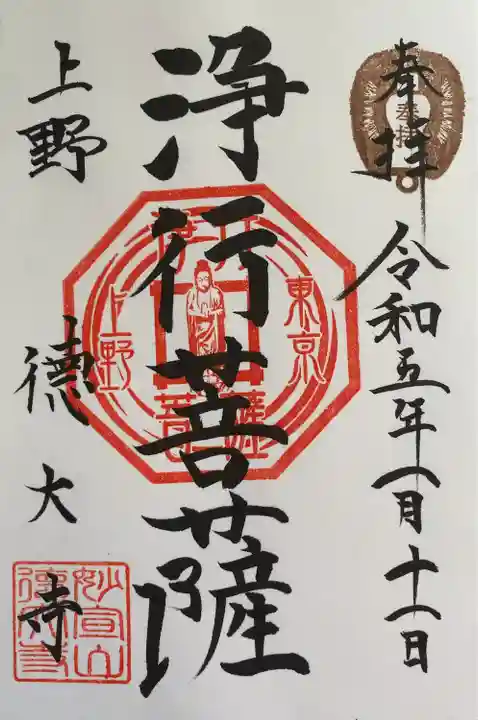 奉拝
令和五年一月十一日
浄行菩薩
上野
徳大寺
奉拝
東京
上野
浄行
菩薩
妙宣山
徳大寺